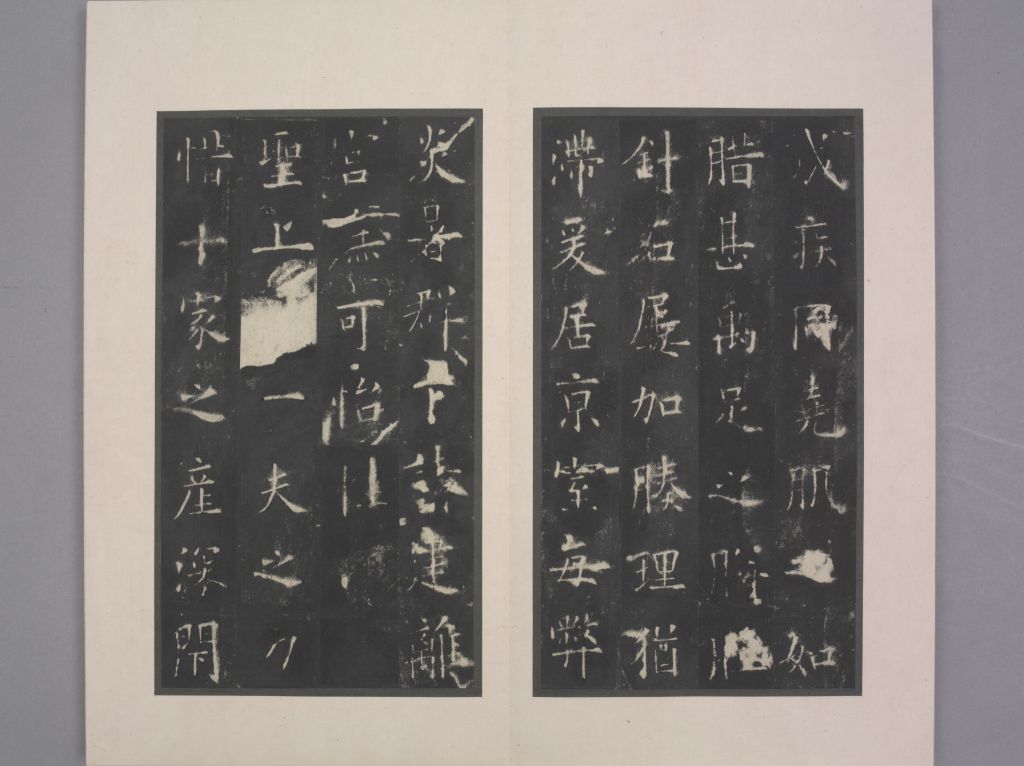 成疾同堯肌之如
腊甚禹足之胼胝
針石屢加腠理猶
滯爰居京室每弊
炎暑群下請建離
宮庶可怡
聖上一夫之力
惜十家之産深閇